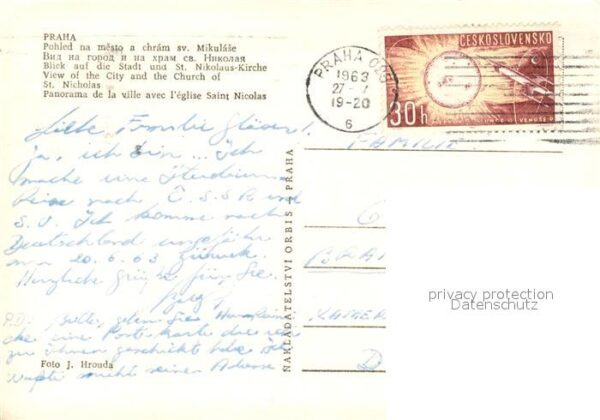 PRAHA
Pohled na město a chrám sv. Mikuláše
Вид на город и на храм св. Николая
Blick auf die Stadt und St. Nikolaus-Kirche
View of the City and the Church of
St. Nicholas
Panorama de la ville avec l'église Saint Nicolas
PRAHA
1963
27
19-20
6
ČESKOSLOVENSKO
30h
VENUŠE
Liebe Familie
Ja, ich bin ... Ich
mache eine Studien
Reise nach Č.S.S.R. und
S.U. Ich komme nach
Deutschland ungefähr
20.6.63 zurück.
Herzliche Grüße für Sie
P.D. Bitte, geben Sie
eine Postkarte dass ich
zu Ihnen geschickt habe. Ich
wußte nicht seinen Adresse
Foto J. Hrouda
NAKLADATELSTVÍ ORBIS PRAHA
FAMILIE
D
privacy protection
Datenschutz